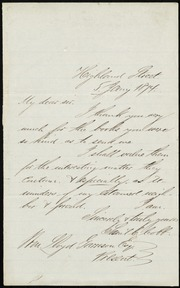 Highland Street
5 Jany 1874.
My dear sir.
I thank you very
much for the books you were
so kind as to send me
I shall value them
for the interesting matter they
contain & especially, as
of my esteemed neigh-
bor & friend.
I am
Sincerely & truly yours
Wm. Lloyd Garrison Esq
Present